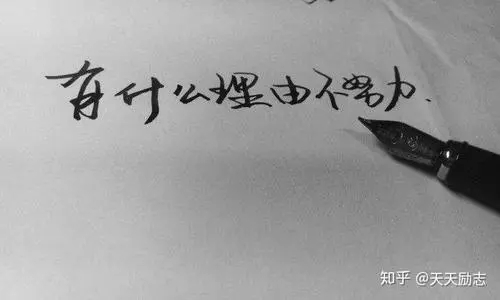 有什么理由不努力.
知乎 @天天励志